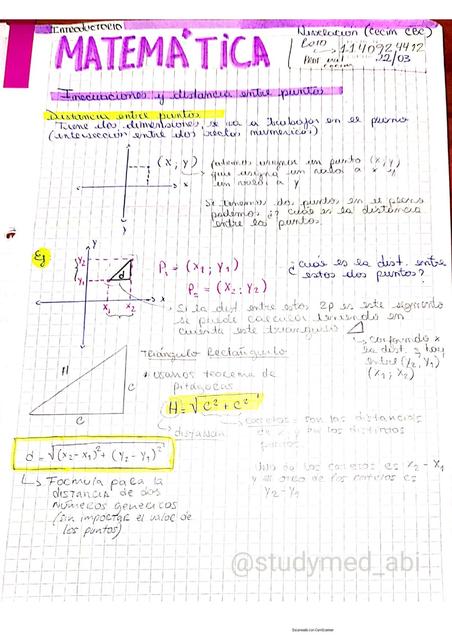 Introductorio
MATEMÁTICA
Nivelación (Cecim CBC)
1140924412
22/03
Inecuaciones y distancia entre puntos
Distancia entre puntos
Tiene dos dimensiones, se va a trabajar en el plano
(intersección entre dos rectas numéricas)
(x; y)
podemos asignar un punto (x; y)
que asigna un valor a x y
un valor a y
x
y
Si tenemos dos puntos en el plano
podemos cual es la distancia
entre los puntos.
Ej
y
y2
y1
d
x1 x2
x
P1 = (x2; y1)
P2 = (x2; y2)
¿Cuál es la dist. entre
estos dos puntos?
Si la dist entre estos 2P es este segmento
se puede calcular teniendo en
cuenta este triángulo
conformado x
la dist. q hay
entre (y2, y1)
(x1; x2)
H
C
C
Triángulo Rectángulo
* usamos teorema de
pitágoras
H = √C² + C²
distancia
catetos = son las distancias
de x y en los distintos
puntos
Uno de los catetos es x2 - x1
y otro de los catetos es
y2 - y1
d = √(x2 - x1)² + (y2 - y1)²
Formula para la
distancia de dos
números genericos
(sin importar el valor de
los puntos)
@studymed_abi
Escaneado con CamScanner